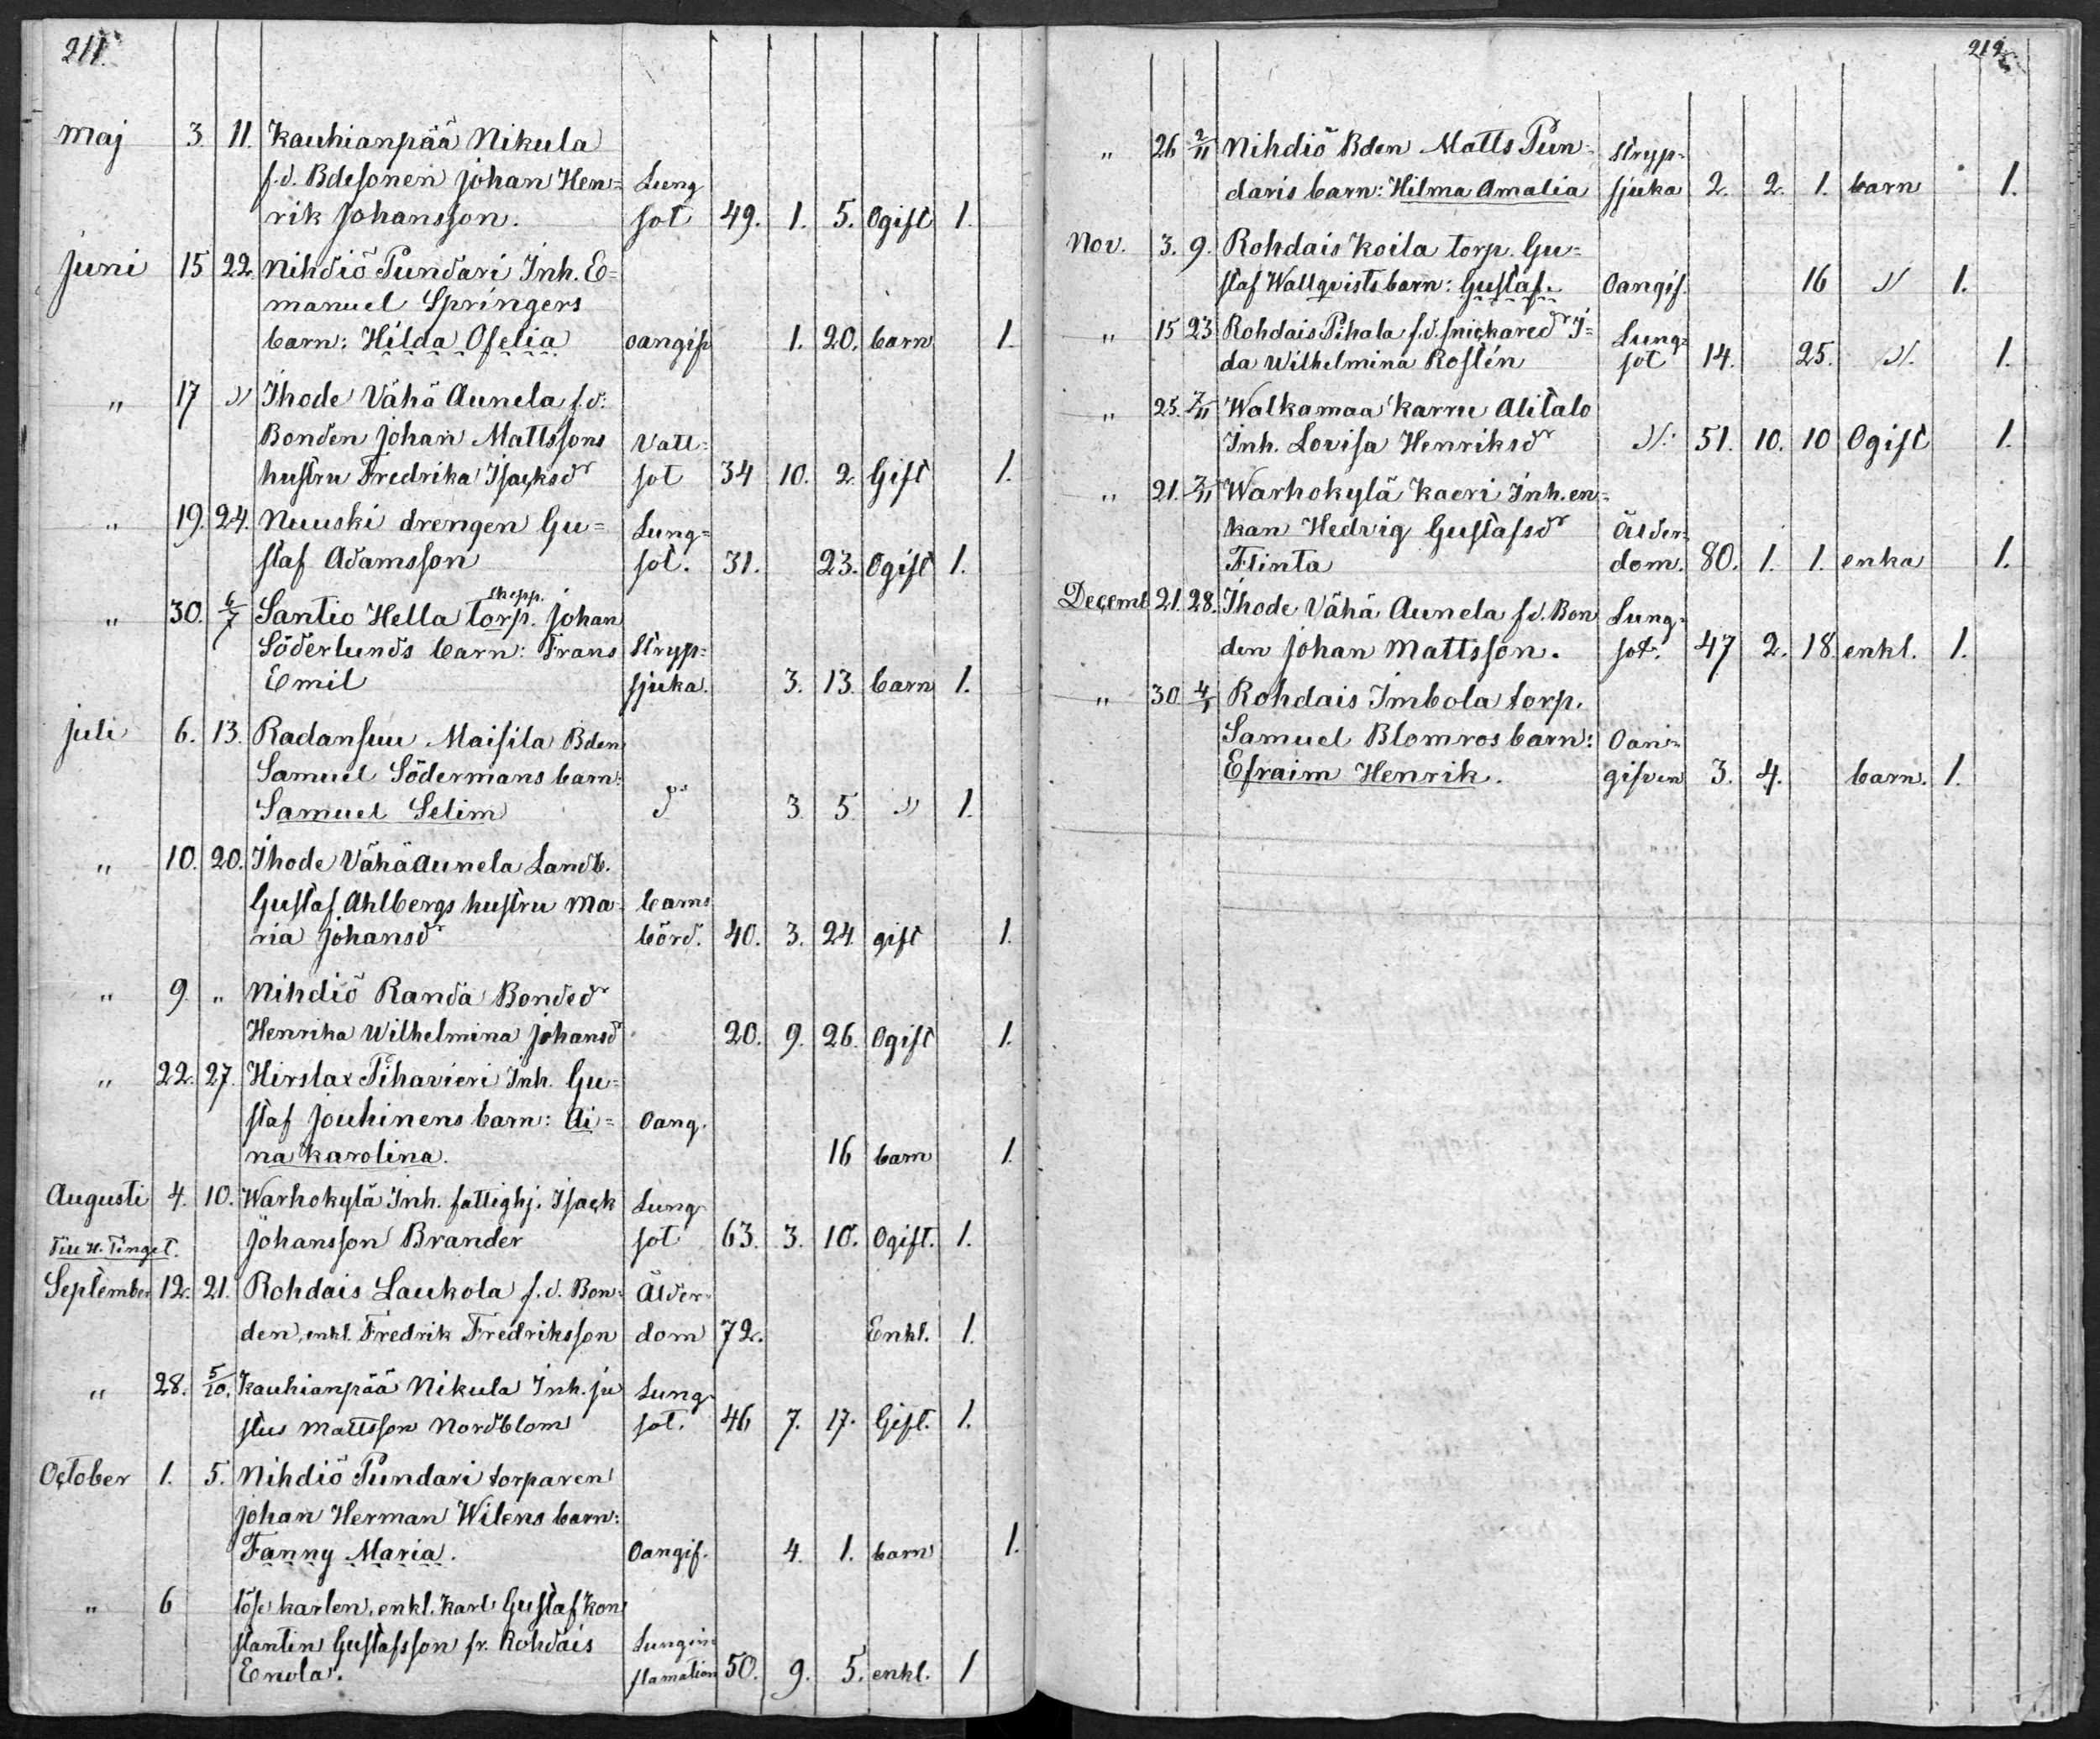 211.
Maj 3 11. Kauhianpää Nikula
f.d. Bdesonen Johan Hen= Lung
rik Johansson. sot 49. 1. 5. Ogift 1.
Juni 15 22. Nihdiö Pundari Inh. E=
manuel Springers
barn: Hilda Ofelia oangif 1. 20. barn 1.
" 17 " Ihode Vähä Aunela f.d.
Bonden Johan Mattssons Vatt=
hustru Fredrika Isacksdr sot 34 10. 2. Gift 1.
" 19. 24. Nuuski drengen Gu= Lung=
staf Adamsson sot. 31. 23. Ogift 1.
skepp.
" 30. 6/7 Santio Hella torp. Johan
Söderlunds barn: Frans Stryp=
Emil sjuka. 3. 13. barn 1.
Juli 6. 13. Radansuu Maisila Bden
Samuel Södermans barn:
Samuel Selim d:o 3. 5. " 1.
" 10. 20. Ihode Vähä Aunela Landb.
Gustaf Ahlbergs hustru Ma= barns
ria Johansdr börd. 40. 3. 24. gift 1.
" 9. " Nihdiö Randa Bondedr
Henrika Wilhelmina Johansdr 20. 9. 26. Ogift 1.
" 22. 27. Hirslax Pihavieri Inh. Gu=
staf Jouhinens barn: Ai= Oang.
na Karolina. 16 barn 1.
Augusti 4. 10. Warhokylä Inh. fattighj. Isack Lung
Till H. Tinget. Johansson Brander sot 63. 3. 10. Ogift. 1.
September 12. 21. Rohdais Laukola f.d. Bon= Ålder
den, enkl. Fredrik Fredriksson dom 72. Enkl. 1.
" 28. 5/10. Kauhianpää Nikula Inh. Ju Lung
stus Mattsson Nordblom sot. 46 7. 17. Gift. 1.
October 1. 5. Nihdiö Pundari torparen
Johan Herman Wilens barn:
Fanny Maria. Oangif. 4. 1. barn 1.
" 6 löse karlen, enkl. Karl Gustaf Kon
stantin Gustafsson fr. Rohdais Lungin
Enola. flamation 50. 9. 5. enkl. 1
212.
" 26 2/11 Nihdiö Bden Matts Pun= Stryp=
daris barn: Hilma Amalia sjuka 2. 2. 1. barn 1.
Nov. 3. 9. Rohdais Koila torp. Gu=
staf Wallqvists barn: Gustaf. Oangif. 16 " 1.
" 15 23 Rohdais Pihala f.d. snickaredr I= Lung=
da Wilhelmina Roslén sot 14. 25. " 1.
" 25. 7/11 Walkamaa Karru Alitalo
Inh. Lovisa Henriksdr " 51. 10. 10 Ogift 1.
" 21. 7/11 Warhokylä Kaeri Inh. en=
kan Hedvig Gustafsdr Ålder=
Flinta dom. 80. 1. 1. enka 1.
Decemb 21. 28. Ihode Vähä Aunela f.d. Bon Lung=
den Johan Mattsson. sot. 47 2. 18. enkl. 1.
" 30. 4/1 Rohdais Imbola torp.
Samuel Blomros barn: Oan=
Efraim Henrik. gifven 3. 4. barn. 1.